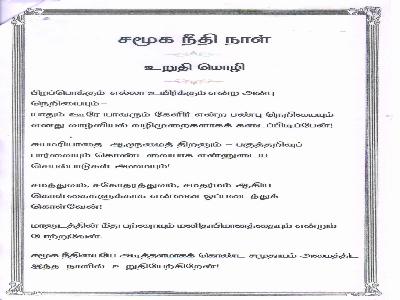 சமூக நீதி நாள்
உறுதி மொழி
பிறப்பொக்கும் எல்லா உயிர்க்கும் என்ற அன்பு
நெறியையும் –
யாதும் ஊரே யாவரும் கேளிர் என்ற பண்பு நெறியையும்
எனது வாழ்வியல் வழிமுறைகளாகக் கடைப்பிடிப்பேன்!
சுயமரியாதை ஆளுமைத் திறனும் – பகுத்தறிவுப்
பார்வையும் கொண்டவையாக என்னுடைய
செயல்பாடுகள் அமையும்!
சமத்துவம், சகோதரத்துவம், சமதர்மம் ஆகிய
கொள்கைகளுக்காக என்னை ஒப்படைத்துக்
கொள்வேன்!
மானுடத்தின் மீதும் பற்றையும் மனிதாபிமானத்தையும் என்றும்
போற்றுவேன்.
சமூக நீதியையே அடித்தளமாகக் கொண்ட சமுதாயம் அமைத்திட
இந்த நாளில் உறுதியேற்கிறேன்!